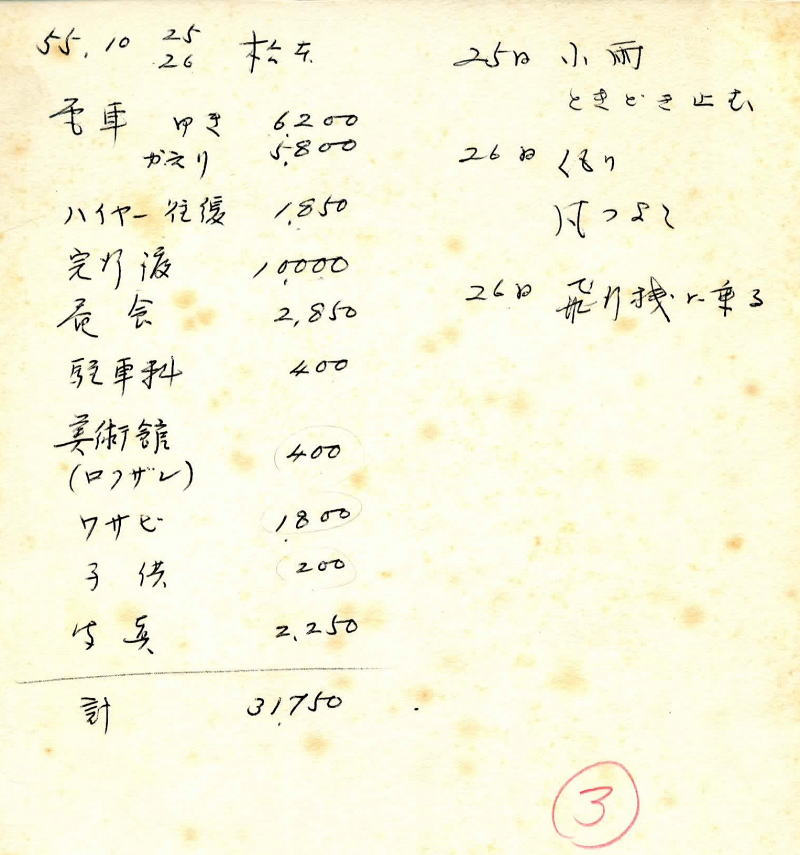 55.10 25
26 松本
電車 ゆき 6,200
かえり 5,800
ハイヤー往復 1,850
渡 10,000
昼食 2,850
駐車料 400
美術館 400
(ロフザン)
ワサビ 1,800
子供 200
写真 2,250
計 31,750
25日 小雨
ときどき止む
26日 くもり
風つよく
26日 飛行機に乗る
3